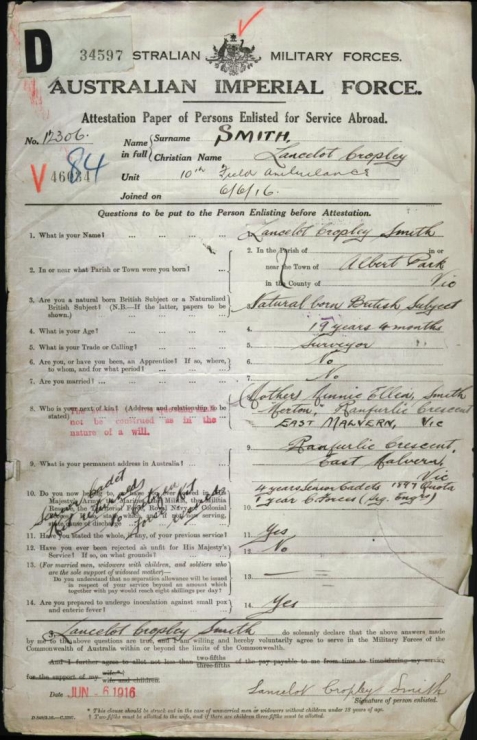 D
34597 STRALIAN MILITARY FORCES.
AUSTRALIAN IMPERIAL FORCE.
Attestation Paper of Persons Enlisted for Service Abroad.
No. 12306. Name in full { Surname SMITH
Christian Name Lancelot Cropley
84
V 46034
Unit 10th Field Ambulance
Joined on 6/6/16.
Questions to be put to the Person Enlisting before Attestation.
1. What is your Name? ... 1. Lancelot Cropley Smith
2. In or near what Parish or Town were you born? ... 2. In the Parish of in or
near the Town of Albert Park
in the County of Vic
3. Are you a natural born British Subject or a Naturalized
British Subject? (N.B.—If the latter, papers to be
shown.) 3. Natural born British Subject
4. What is your Age? ... 4. 19 years 4 months
5. What is your Trade or Calling? ... 5. Surveyor
6. Are you, or have you been, an Apprentice? If so, where,
to whom, and for what period? ... 6. No
7. Are you married? ... 7. No
8. Who is your next of kin? (Address and relationship to be
stated) 8. Mother Minnie Ellen Smith
not be confirmed as in the
nature of a will.
Merton, Ranfurlie Crescent
EAST MALVERN, Vic
9. What is your permanent address in Australia? ... 9. Ranfurlie Crescent,
East Malvern,
Vic
10. Do you now belong to, or have you ever served in, His
Majesty's Army, the Marines, the Militia, the Militia
Reserve, the Territorial Reserve, Royal Navy, or Colonial
Forces? If so, state which, and if not now serving,
state cause of discharge 10. 4 years Senior Cadets 1897 Quota
1 year C. Forces (Sig. Engrs)
Senior Cadet
11. Have you stated the whole, if any, of your previous service? 11. Yes
12. Have you ever been rejected as unfit for His Majesty's
Service? If so, on what grounds? 12. No
13. (For married men, widowers with children, and soldiers who
are the sole support of widowed mother)—
Do you understand that no separation allowance will be issued
in respect of your service beyond an amount which
together with pay would reach eight shillings per day? 13. —
14. Are you prepared to undergo inoculation against small pox
and enteric fever? 14. Yes
I, Lancelot Cropley Smith do solemnly declare that the above answers made
by me to the above questions are true, and I am willing and hereby voluntarily agree to serve in the Military Forces of the
Commonwealth of Australia within or beyond the limits of the Commonwealth.
And I further agree to allot not less than two-fifths three-fifths of the pay payable to me from time to time during my service
for the support of my wife
wife and children.
Date JUN - 6 1916 Lancelot Cropley Smith
Signature of person enlisted.
* This clause should be struck out in the case of unmarried men or widowers without children under 18 years of age.
† Two-fifths must be allotted to the wife, and if there are children three-fifths must be allotted.